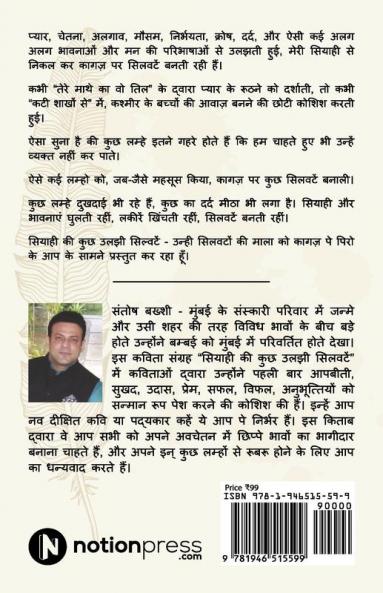 प्यार, चेतना, अलगाव, मौसम, निर्भयता, क्रोष, दर्द, और ऐसी कई अलग
अलग भावनाओं और मन की परिभाषाओं से उलझती हुई, मेरी सियाही से
निकल कर कागज़ पर सिलवटें बनती रही हैं।
कभी "तेरे माथे का वो तिल" के द्वारा प्यार के रूठने को दर्शाती, तो कभी
"कटी शाखों से" में, कश्मीर के बच्चों की आवाज़ बनने की छोटी कोशिश करती
हुई।
ऐसा सुना है की कुछ लम्हे इतने गहरे होते हैं कि हम चाहते हुए भी उन्हें
व्यक्त नहीं कर पाते।
ऐसे कई लम्हो को, जब-जैसे महसूस किया, कागज़ पर कुछ सिलवटें बनाली।
कुछ लम्हे दुखदाई भी रहे हैं, कुछ का दर्द मीठा भी लगा है। सियाही और
भावनाएं घुलती रहीं, लकीरें खिंचती रहीं, सिलवटें बनती रहीं।
सियाही की कुछ उलझी सिल्वटें - उन्ही सिलवटों की माला को कागज़ पे पिरो
के आप के सामने प्रस्तुत कर रहा हूँ।
संतोष बख्शी - मुंबई के संस्कारी परिवार में जन्मे
और उसी शहर की तरह विविध भावों के बीच बड़े
होते उन्होंने बम्बई को मुंबई में परिवर्तित होते देखा।
इस कविता संग्रह "सियाही की कुछ उलझी सिलवटें"
में कविताओं द्वारा उन्होंने पहली बार आपबीती,
सुखद, उदास, प्रेम, सफल, विफल, अनुभूत्तियों को
सन्मान रूप पेश करने की कोशिश की हैं। इन्हें आप
नव दीक्षित कवि या पद्यकार कहें ये आप पे निर्भर हैं। इस किताब
द्वारा वे आप सभी को अपने अवचेतन में छिप्पे भावों का भागीदार
बनाना चाहते हैं, और अपने इन् कुछ लम्हों से रूबरू होने के लिए आप
का धन्यवाद करते हैं।
Price ₹99
ISBN 978-1-946515-59-9
90000
9 781946 515599
N notionpress
.com